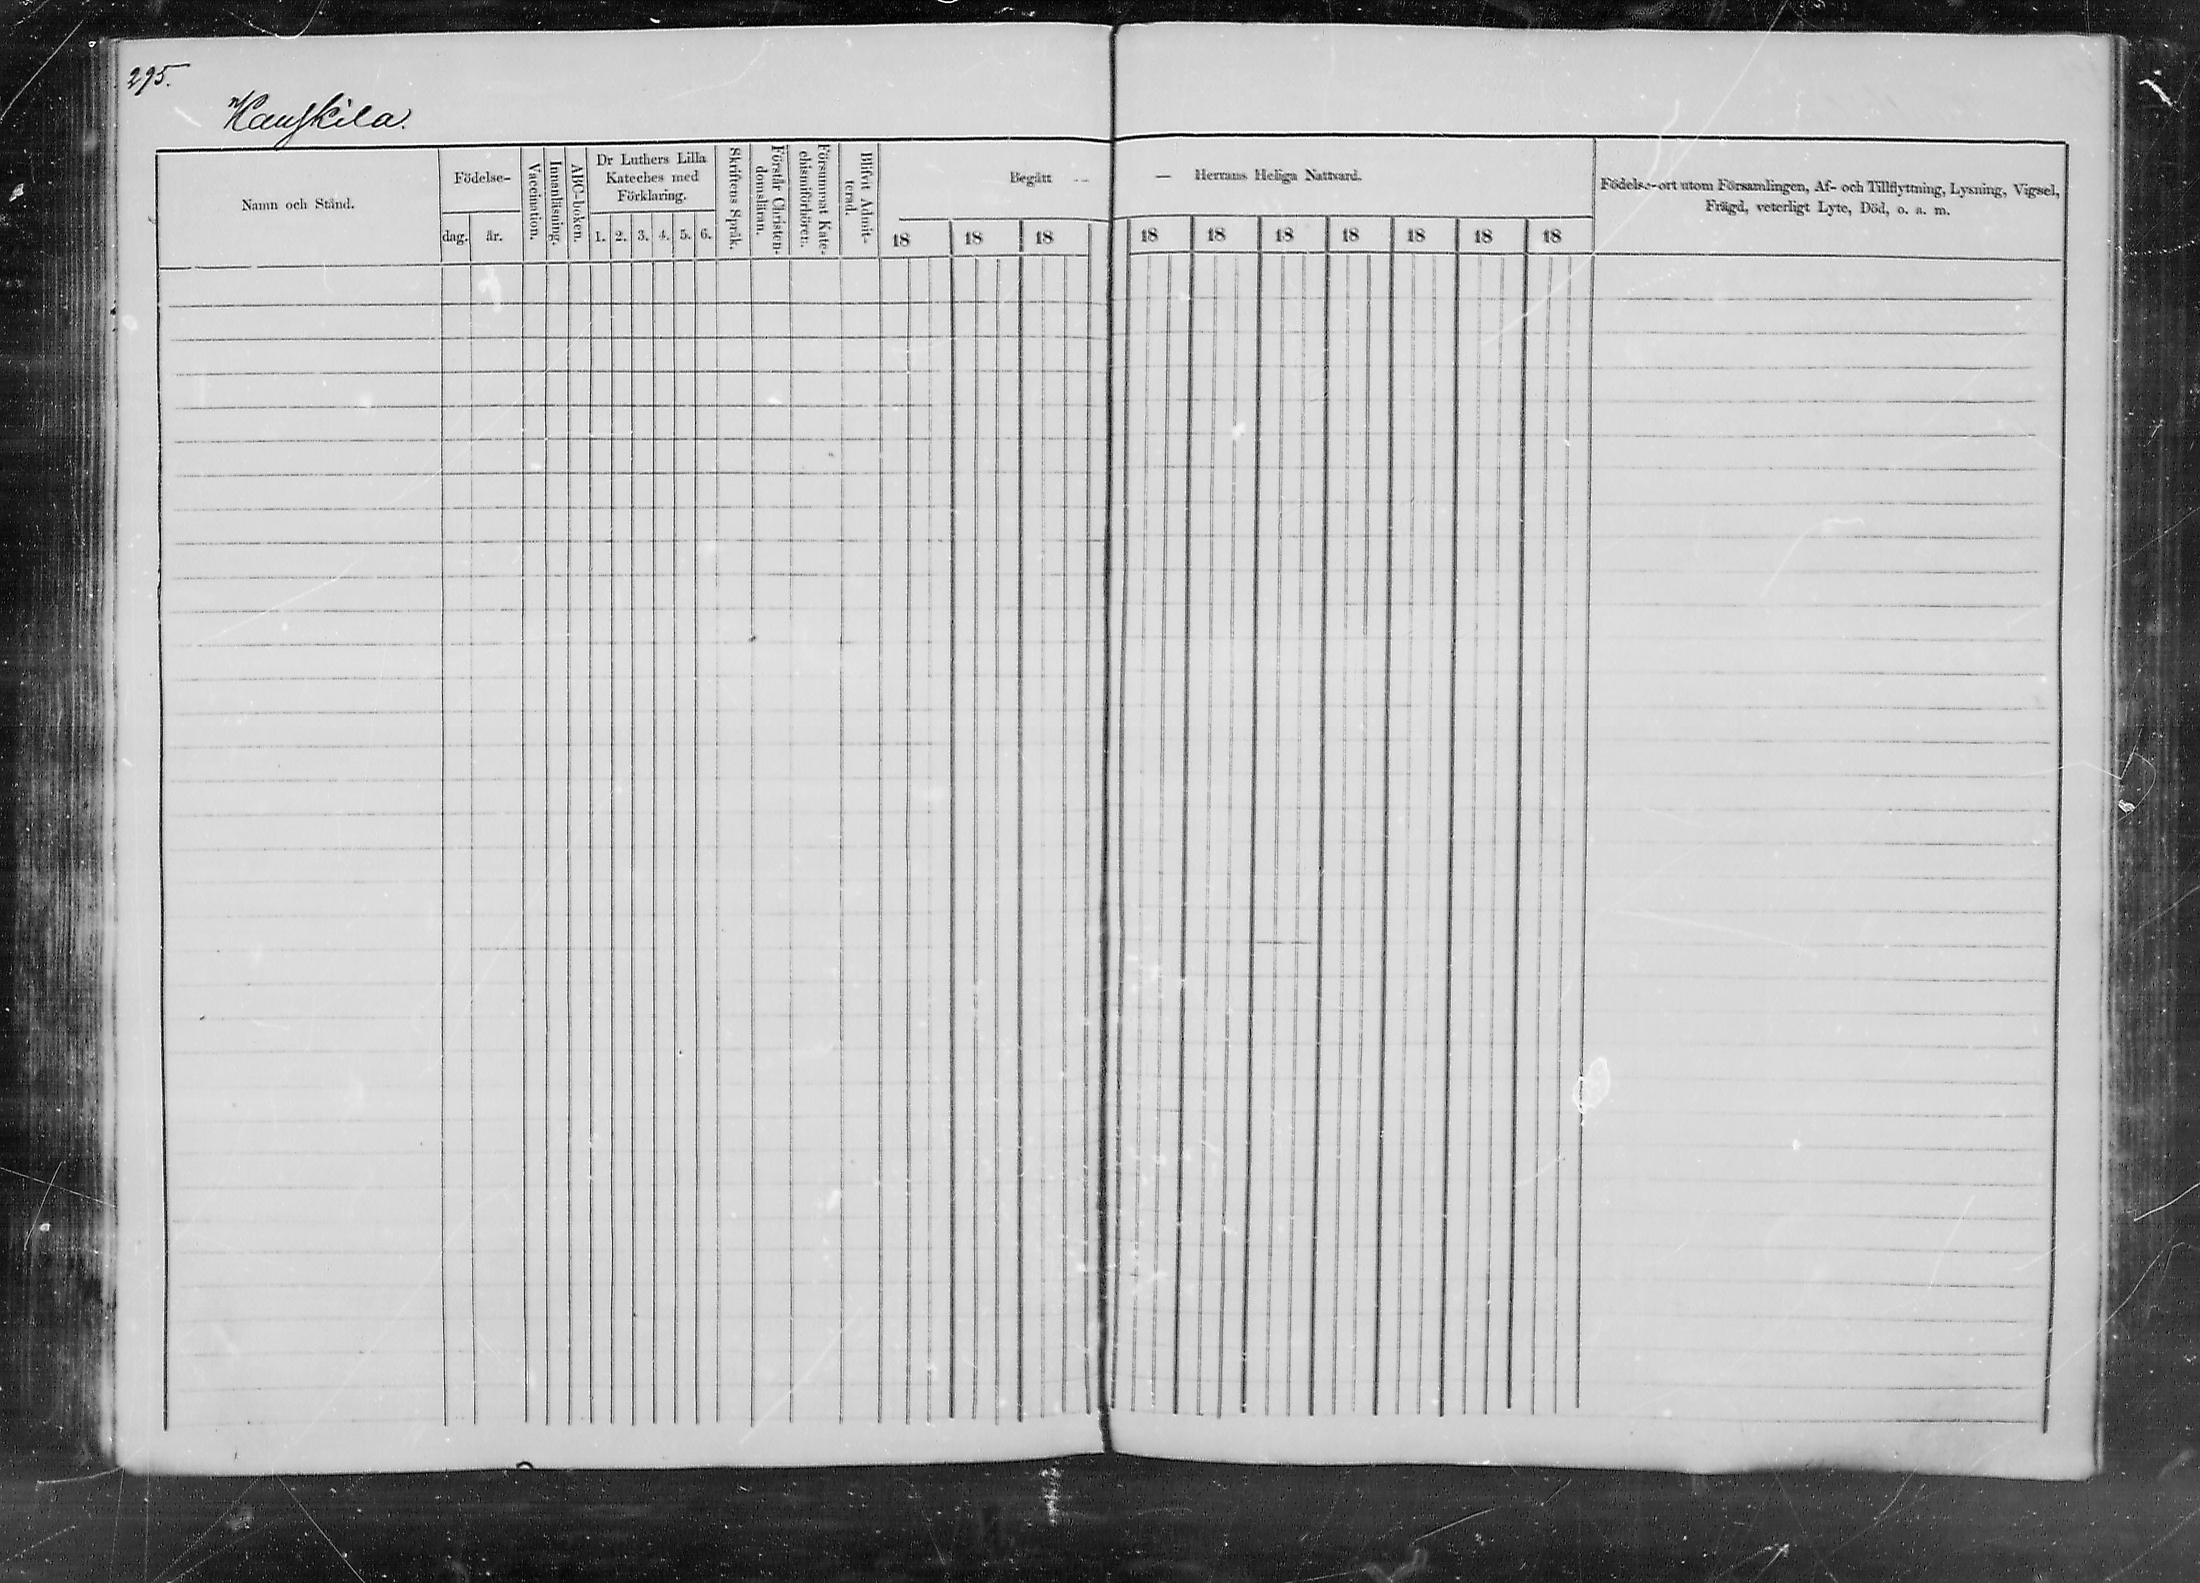 295.
Hauskila.
Namn och Stånd.
Födelse-
dag.
år.
Vaccination.
Innanläsning.
ABC-boken.
Dr Luthers Lilla
Kateches med
Förklaring.
1. 2. 3. 4. 5. 6.
Skriftens Språk.
Förstår Christen-
domsläran.
Försummat Kate-
chismiförhören.
Blifvit Admit-
terad.
Begått — — Herrans Heliga Nattvard.
18 18 18 18 18 18 18 18 18 18
Födelse-ort utom Församlingen, Af- och Tillflyttning, Lysning, Vigsel,
Frägd, veterligt Lyte, Död, o. a. m.